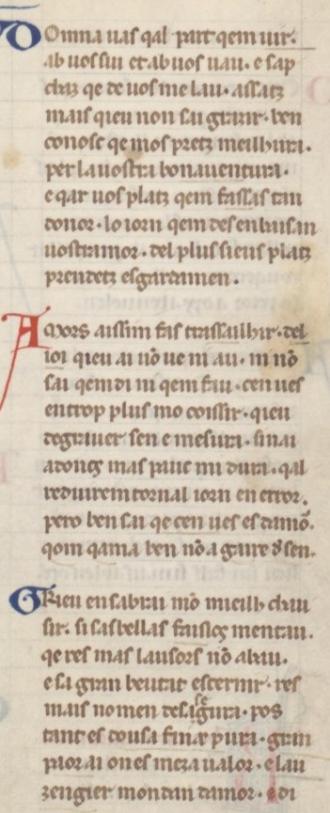 DOmna uas qal part qem uir.
ab uos sui et ab uos uau. e sap
chaz qe de uos me lau. assatz
mais qieu non sai grazir. ben
conosc qe mos pretz meilhura.
per la uostra bonauentura.
e qar uos platz qem fassas tan
donor. lo iorn qem des en baisan
uostramor. del plus si eus platz
prendetz esgardamen.
AMors aissim fas trassailhir. del
ioi qieu ai nō ue ni au. ni nō
sai qem di ni qem fau. cen ues
en trop plus mo cossir. qieu
degrauer sen e mesura. si nai
adoncs mas pauc mi dura. qal
reduirem tornal iorn en error.
pero ben sai qe cen ues es damō.
qom qama ben nō a gaire de sen.
GReu en sabrai mō mieilh chau
sir. si sas bellas faisocs mentau.
qe res mas lausors nō abau.
e sa gran beutat esternir. res
mais no men desigura. pos
tant es cousa fina e pura. gran
paor ai ones meza ualor. e lau
zengier mondan damor. e di